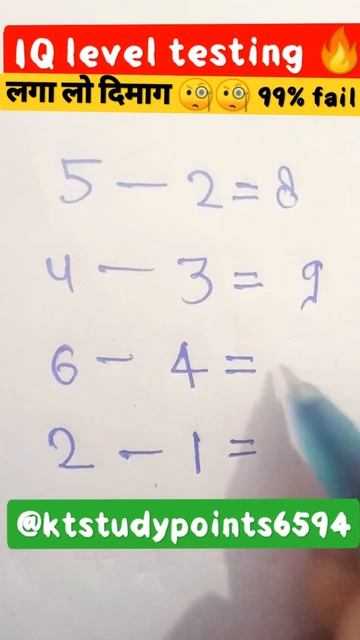 IQ level testing 🔥
लगा लो दिमाग 🧐🧐 99% fail
5 - 2 = 8
4 - 3 = 9
6 - 4 =
2 - 1 =
@ktstudypoints6594